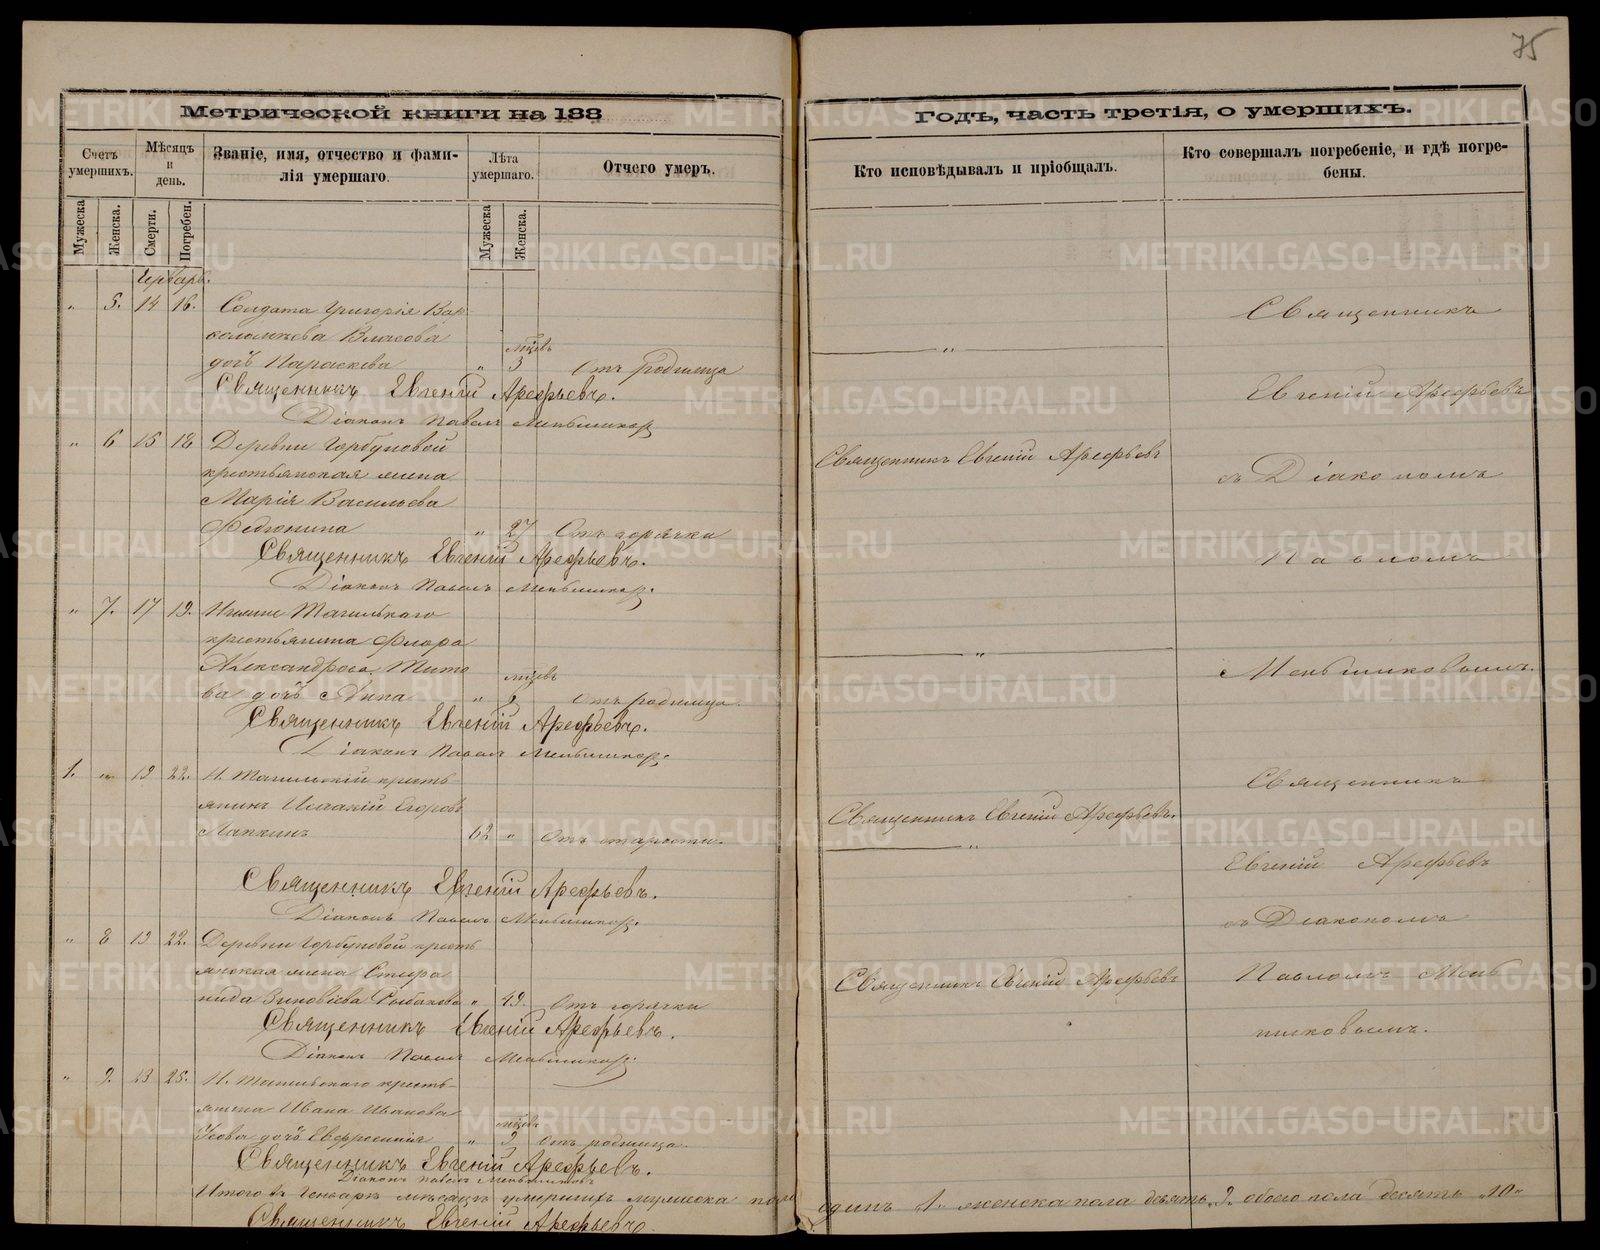 75
Метрической книги на 188
Годъ, часть третія, о умершихъ.
Счетъ умершихъ.
Мѣсяцъ и день.
Званіе, имя, отчество и фами-
лія умершаго.
Лѣта умершаго.
Отчего умеръ.
Кто исповѣдывалъ и пріобщалъ.
Кто совершалъ погребеніе, и гдѣ погре-
бены.
Мужеска
Женска.
Смерти.
Погребен.
Мужеска
Женска.
Январь.
" 5. 14 16. Солдата Григорія Вар-
ѳоломѣева Власова
дочь Параскева " мѣсяцъ 3 Отъ родимца
Священникъ Евгеній Арефьевъ.
Діаконъ Павелъ Меньшиковъ
" 6 15 18 Деревни Горбуновой
крестьянская жена
Марія Васильева
Федюнина " 27 Отъ горячки
Священникъ Евгеній Арефьевъ.
Діаконъ Павелъ Меньшиковъ.
" 7. 17 19. Нижне Тагильскаго
крестьянина Флора
Александрова Тито-
ва дочь Анна " Отъ родимца.
Священникъ Евгеній Арефьевъ.
Діаконъ Павелъ Меньшиковъ.
1. " 19 22. Н. Тагильскій кресть-
янинъ Исаакій Егоровъ
Лапкинъ 62 " Отъ старости.
Священникъ Евгеній Арефьевъ.
Діаконъ Павелъ Меньшиковъ.
" 8 19 22. Деревни Горбуновой кресть-
янская жена Стефа-
нида Зиновіева Рыбакова " 49. Отъ горячки
Священникъ Евгеній Арефьевъ.
Діаконъ Павелъ Меньшиковъ.
" 9. 23 25. Н. Тагильскаго кресть-
янина Ивана Иванова
Усова дочь Евфросинія " 3 Отъ родимца.
Священникъ Евгеній Арефьевъ.
Діаконъ Павелъ Меньшиковъ
Итого въ Генварѣ мѣсяцѣ умершихъ мужеска пола одинъ 1. женска пола девять 9. обоего пола десять "10"
Священникъ Евгеній Арефьевъ
Священникъ Евгеній Арефьевъ
Священникъ Евгеній Арефьевъ.
Священникъ Евгеній Арефьевъ
Священникъ
Евгеній Арефьевъ
съ Діакономъ
Павломъ
Меньшиковымъ.
Священникъ
Евгеній Арефьевъ
съ Діакономъ
Павломъ Мень-
шиковымъ.
METRIKI.GASO-URAL.RU